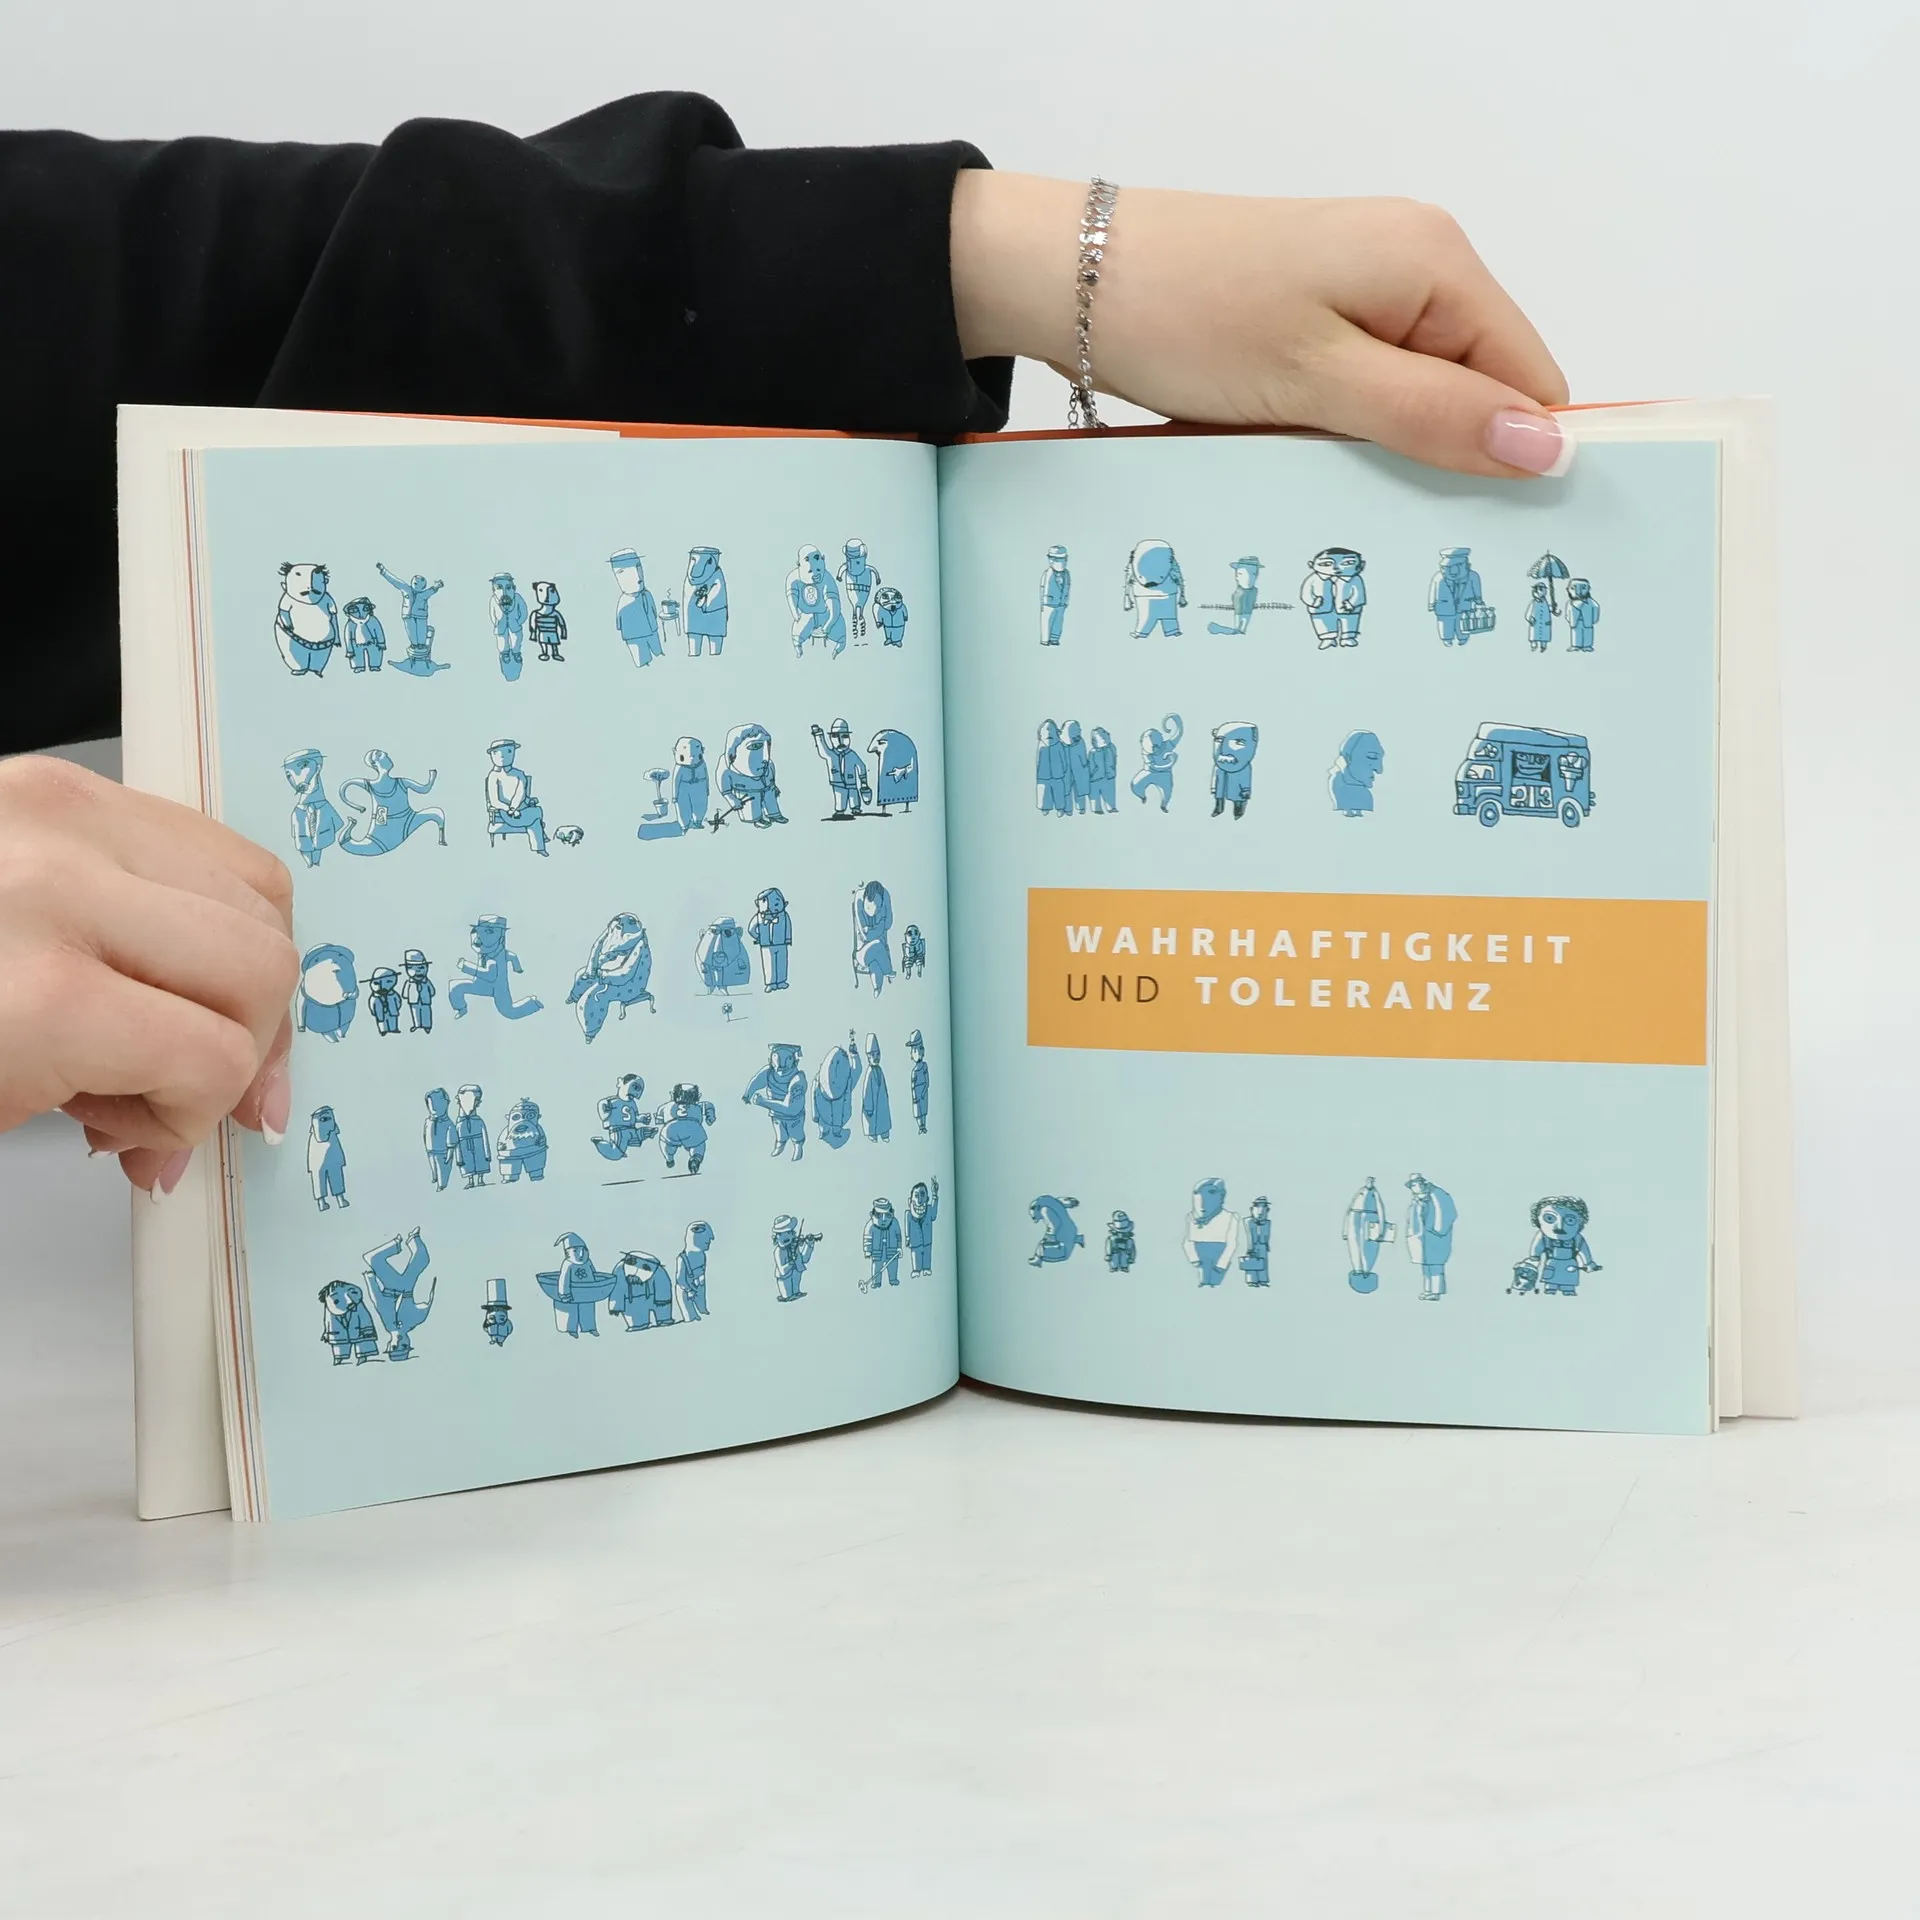 213
WAHRHAFTIGKEIT
UND TOLERANZ